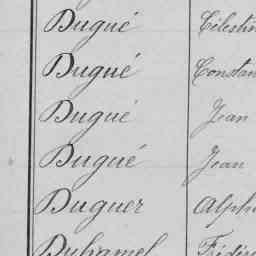 Dugué Célestin
Dugué Constan
Dugué Jean
Dugué Jean
Duguer Alph
Duhamel Frédér